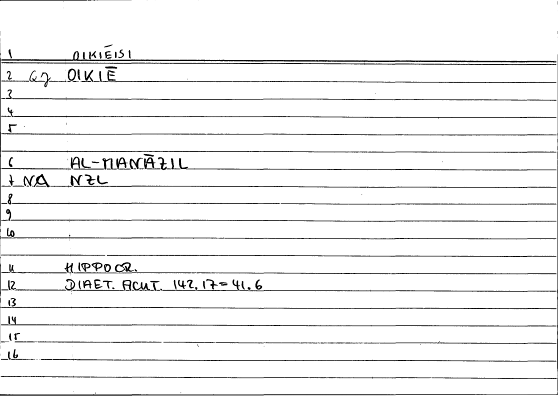 1 OIKIĒISI
2 OIKIĒ
3
4
5
6 AL-MANĀZIL
7 NA NZL
8
9
10
11 HIPPOCR.
12 DIAET. ACUT. 142.17=41.6
13
14
15
16